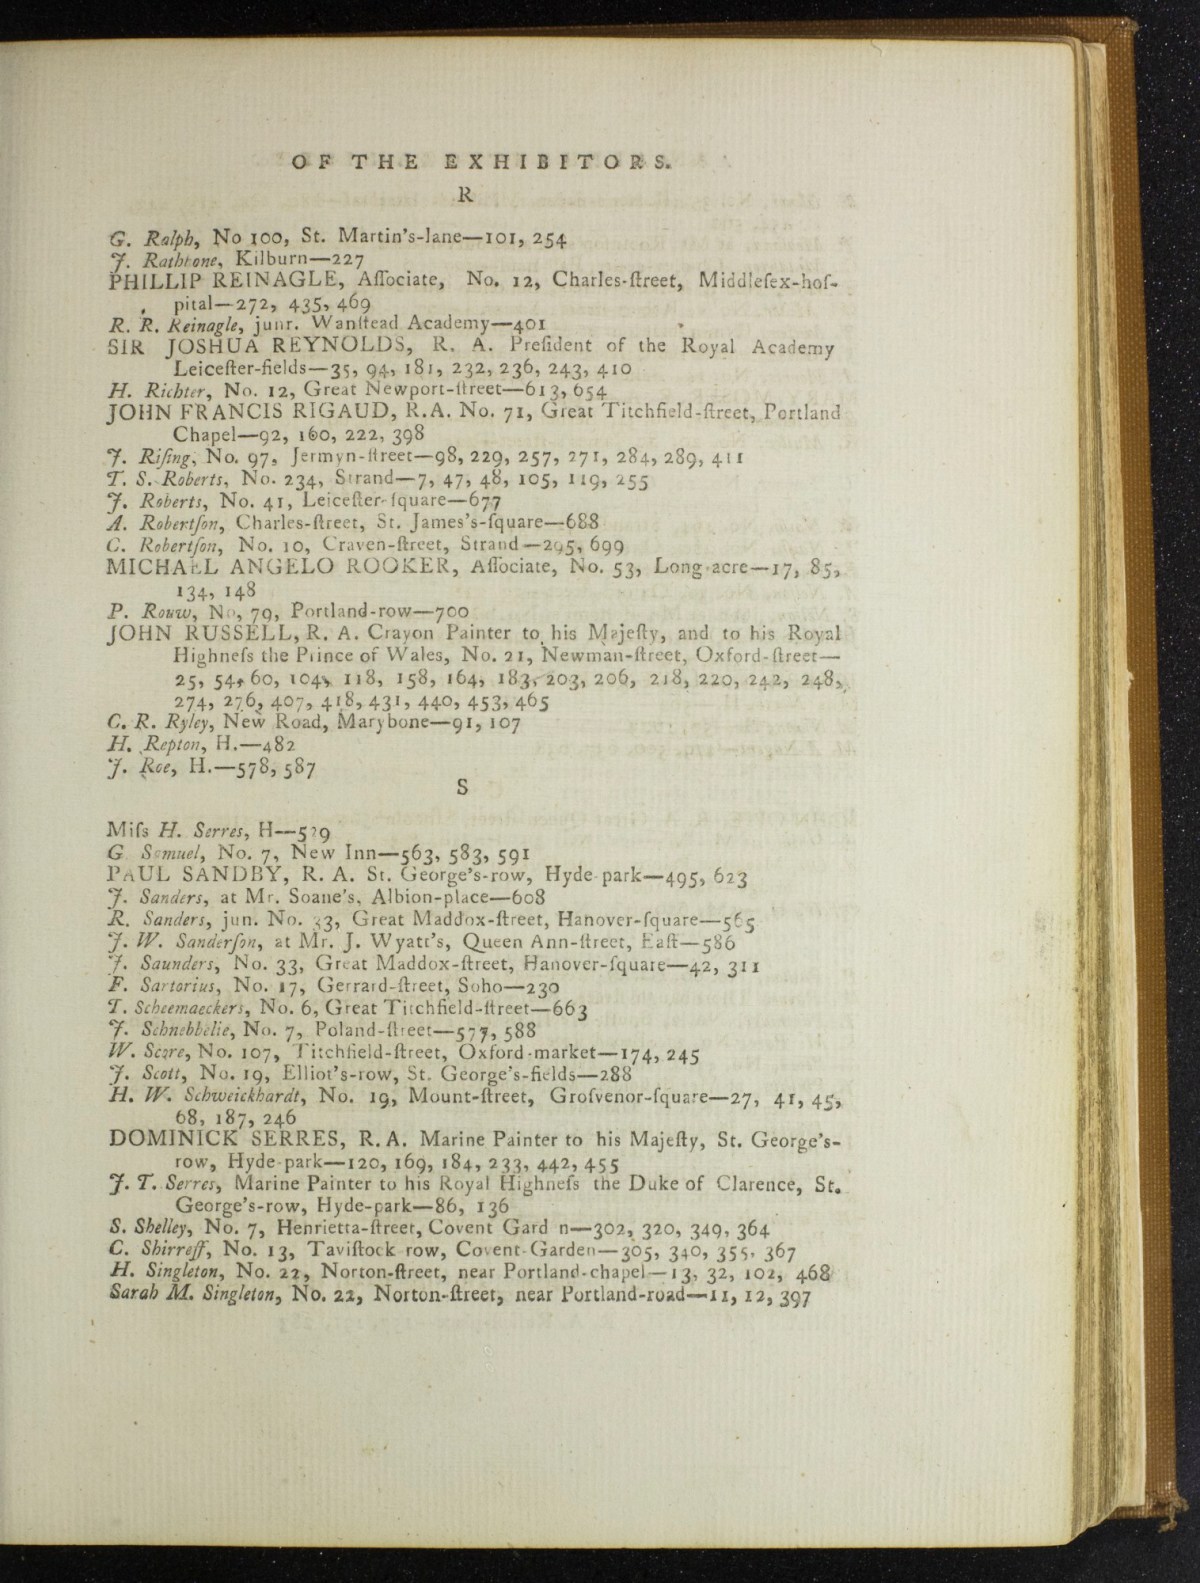 OF THE EXHIBITORS.
R
G. Ralph, No 100, St. Martin's-lane—101, 254
J. Rathbone, Kilburn—227
PHILLIP REINAGLE, Aſſociate, No. 12, Charles-ſtreet, Middleſex-hoſ-
pital—272, 435, 469
R. R. Reinagle, junr. Wanſtead Academy—401
SIR JOSHUA REYNOLDS, R. A. Preſident of the Royal Academy
Leiceſter-fields—35, 94, 181, 232, 236, 243, 410
H. Richter, No. 12, Great Newport-ſtreet—613, 654
JOHN FRANCIS RIGAUD, R.A. No. 71, Great Titchfield-ſtreet, Portland
Chapel—92, 160, 222, 398
J. Riſing, No. 97, Jermyn-ſtreet—98, 229, 257, 271, 284, 289, 411
T. S. Roberts, No. 234, Strand—7, 47, 48, 105, 119, 255
J. Roberts, No. 41, Leiceſter-ſquare—677
A. Robertſon, Charles-ſtreet, St. James's-ſquare—688
C. Robertſon, No. 10, Craven-ſtreet, Strand—295, 699
MICHAEL ANGELO ROOKER, Aſſociate, No. 53, Long-acre—17, 85,
134, 148
P. Rouw, No, 79, Portland-row—700
JOHN RUSSELL, R. A. Crayon Painter to his Majeſty, and to his Royal
Highneſs the Prince of Wales, No. 21, Newman-ſtreet, Oxford-ſtreet—
25, 54, 60, 104, 118, 158, 164, 183, 203, 206, 218, 220, 242, 248,
274, 276, 407, 418, 431, 440, 453, 465
C. R. Ryley, New Road, Marybone—91, 107
H. Repton, H.—482
J. Roe, H.—578, 587
S
Miſs H. Serres, H—529
G Samuel, No. 7, New Inn—563, 583, 591
PAUL SANDBY, R. A. St. George's-row, Hyde-park—495, 623
J. Sanders, at Mr. Soane's, Albion-place—608
R. Sanders, jun. No. 33, Great Maddox-ſtreet, Hanover-ſquare—565
J. W. Sanderſon, at Mr. J. Wyatt's, Queen Ann-ſtreet, Eaſt—586
J. Saunders, No. 33, Great Maddox-ſtreet, Hanover-ſquare—42, 311
F. Sartorius, No. 17, Gerrard-ſtreet, Soho—230
T. Scheemaeckers, No. 6, Great Titchfield-ſtreet—663
J. Schnebbelie, No. 7, Poland-ſtreet—577, 588
W. Score, No. 107, Titchfield-ſtreet, Oxford-market—174, 245
J. Scott, No. 19, Elliot's-row, St. George's-fields—288
H. W. Schweickhardt, No. 19, Mount-ſtreet, Groſvenor-ſquare—27, 41, 45,
68, 187, 246
DOMINICK SERRES, R. A. Marine Painter to his Majeſty, St. George's-
row, Hyde-park—120, 169, 184, 233, 442, 455
J. T. Serres, Marine Painter to his Royal Highneſs the Duke of Clarence, St.
George's-row, Hyde-park—86, 136
S. Shelley, No. 7, Henrietta-ſtreet, Covent Gard n—302, 320, 349, 364
C. Shirreff, No. 13, Taviſtock row, Covent-Garden—305, 340, 355, 367
H. Singleton, No. 22, Norton-ſtreet, near Portland-chapel—13, 32, 102, 468
Sarah M. Singleton, No. 22, Norton-ſtreet, near Portland-road—11, 12, 397